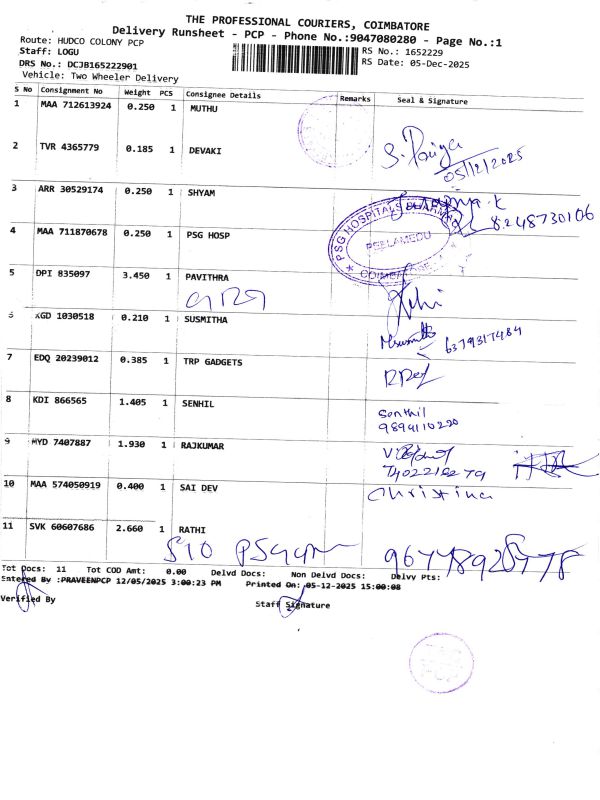 THE PROFESSIONAL COURIERS, COIMBATORE
Delivery Runsheet - PCP - Phone No.:9047080280 - Page No.:1
Route: HUDCO COLONY PCP
RS No.: 1652229
Staff: LOGU
RS Date: 05-Dec-2025
DRS No.: DCJB165222901
Vehicle: Two Wheeler Delivery
S No Consignment No Weight PCS Consignee Details Remarks Seal & Signature
1 MAA 712613924 0.250 1 MUTHU
2 TVR 4365779 0.185 1 DEVAKI
05/12/2025
3 ARR 30529174 0.250 1 SHYAM
8248730106
4 MAA 711870678 0.250 1 PSG HOSP
PSG HOSPITALS
PEELAMEDU
5 DPI 835097 3.450 1 PAVITHRA
6 KGD 1030518 0.210 1 SUSMITHA
6379317484
7 EDQ 20239012 0.385 1 TRP GADGETS
8 KDI 866565 1.405 1 SENHIL
Senthil
9894110220
9 MYD 7407887 1.930 1 RAJKUMAR
10 MAA 574050919 0.400 1 SAI DEV
Christina
11 SVK 60607686 2.660 1 RATHI
Tot Docs: 11 Tot COD Amt: 0.00 Delvd Docs: Non Delvd Docs: Delvy Pts:
Entered By :PRAVEENPCP 12/05/2025 3:00:23 PM Printed On: 05-12-2025 15:00:08
Verified By
Staff Signature